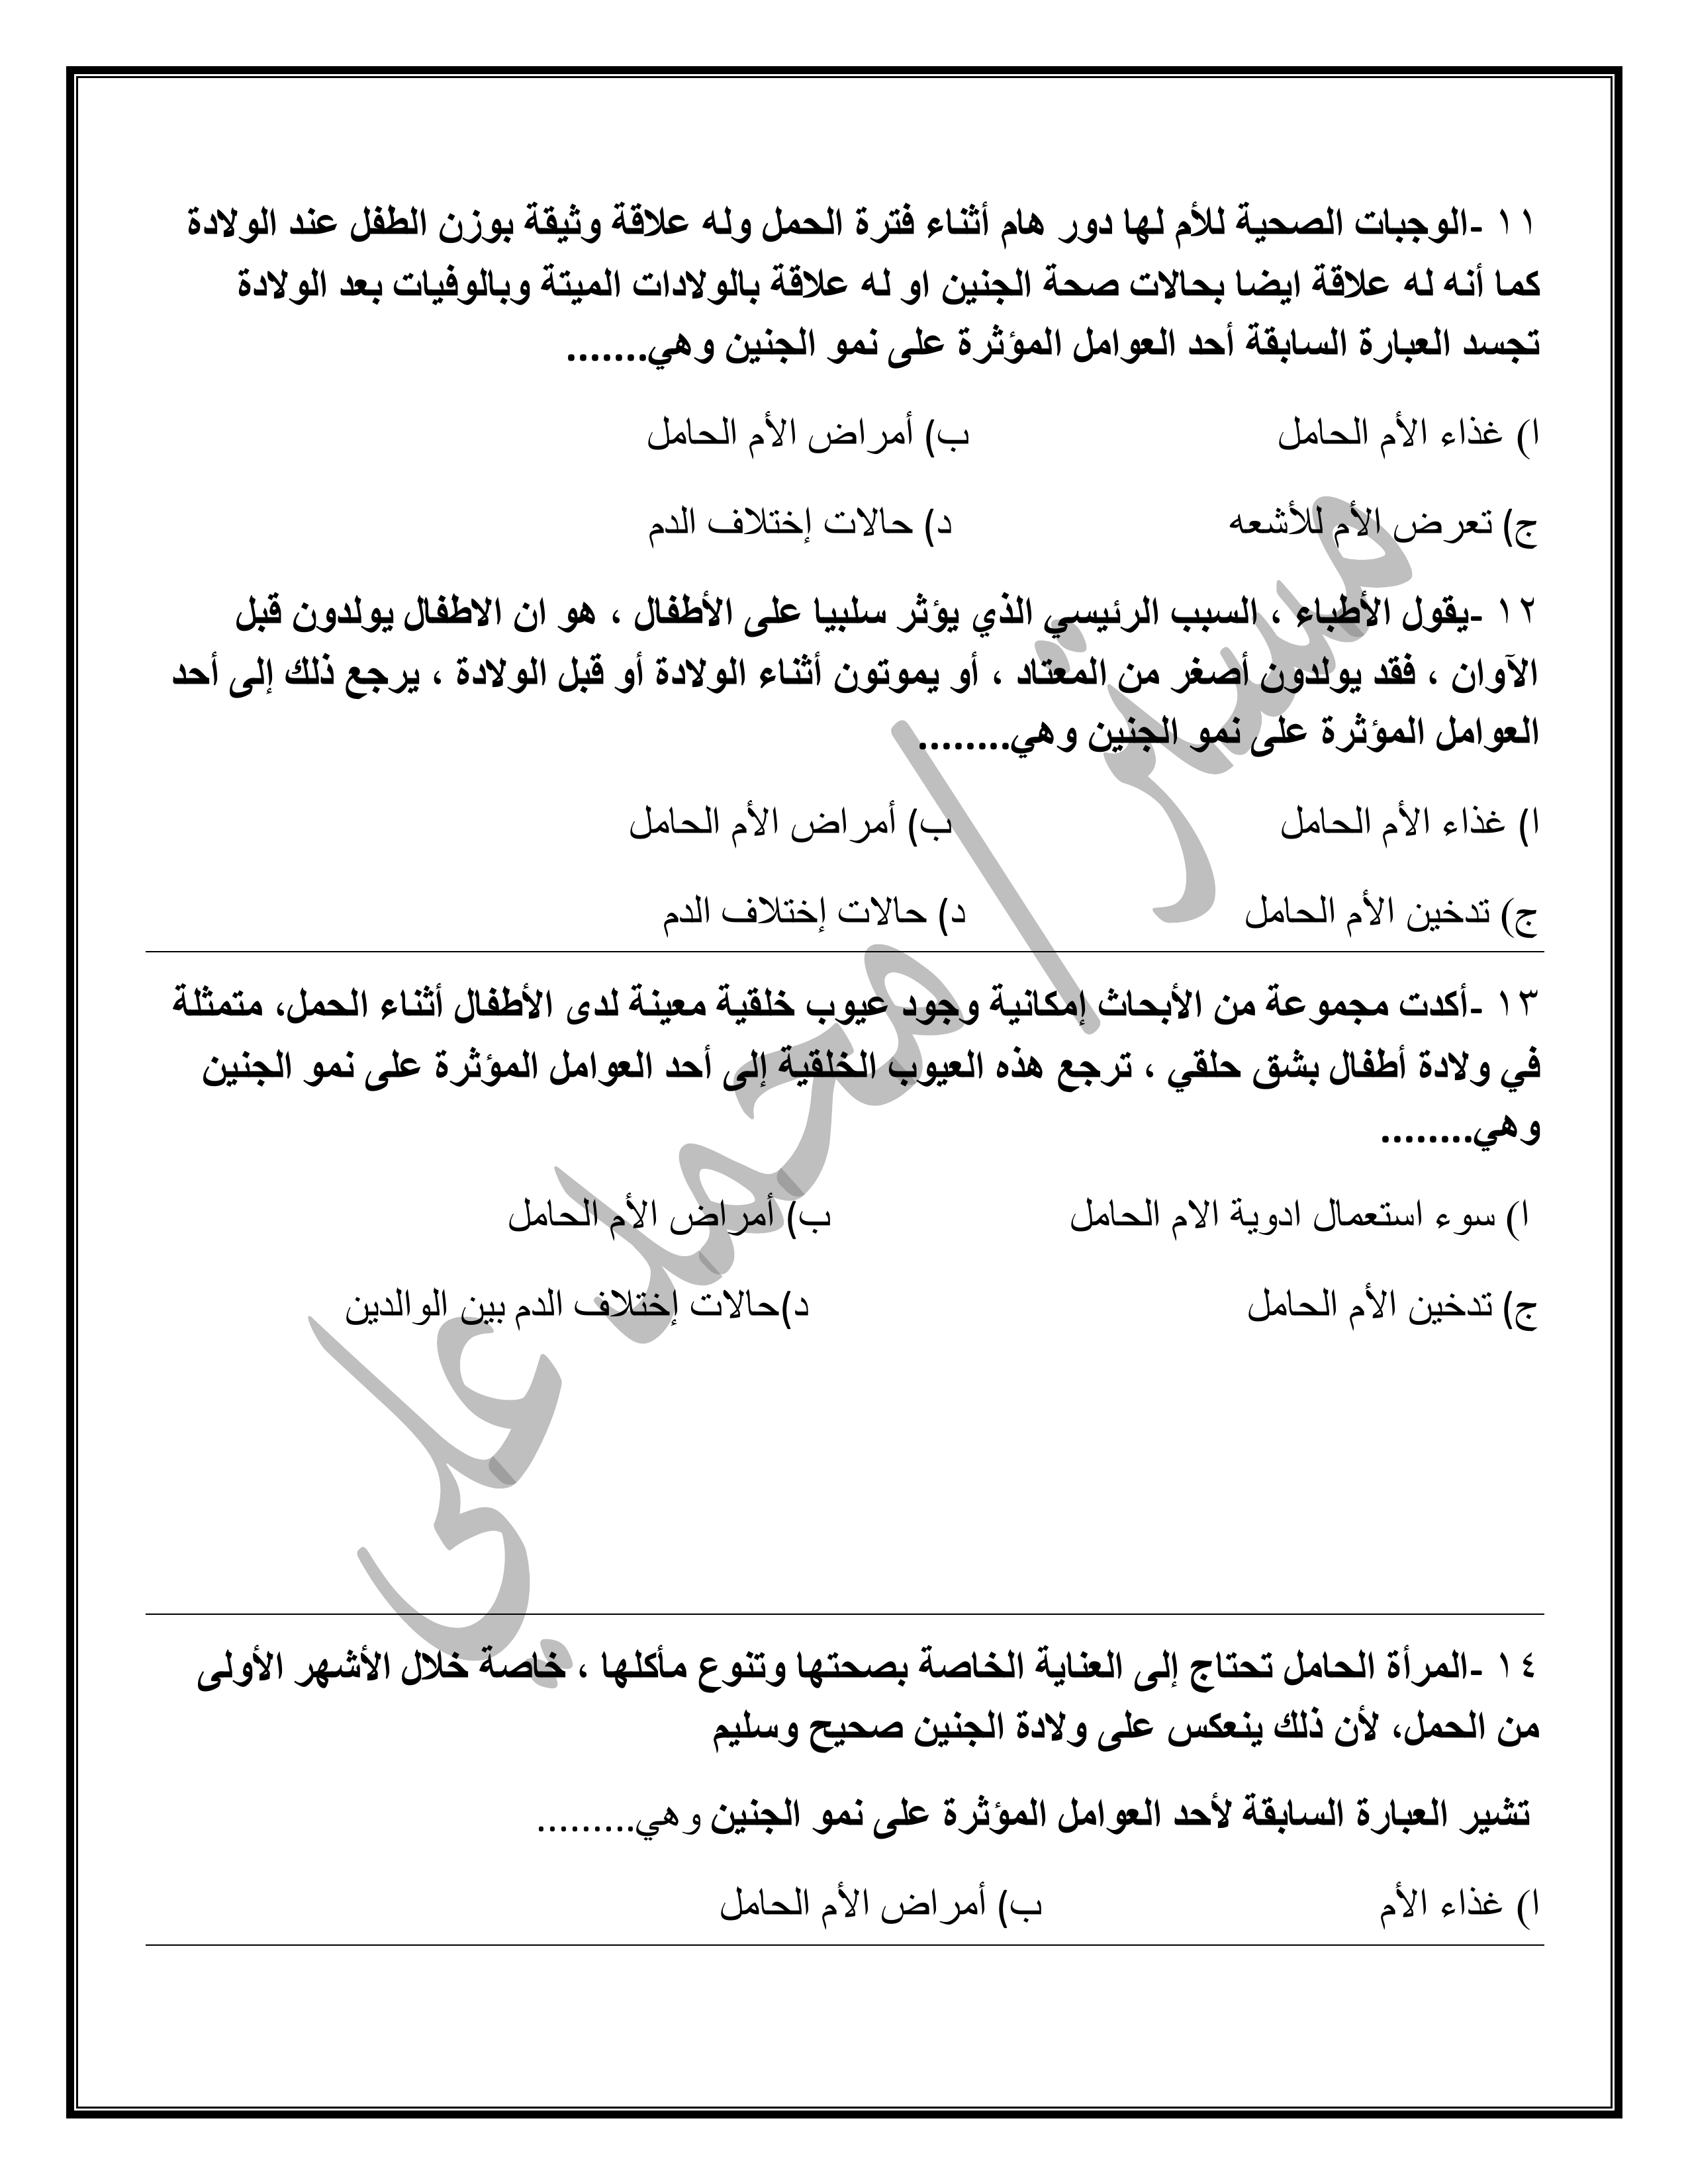 ١١ -الوجبات الصحية للأم لها دور هام أثناء فترة الحمل وله علاقة وثيقة بوزن الطفل عند الولادة
كما أنه له علاقة ايضا بحالات صحة الجنين او له علاقة بالولادات الميتة وبالوفيات بعد الولادة
تجسد العبارة السابقة أحد العوامل المؤثرة على نمو الجنين وهي.......
ا) غذاء الأم الحامل ب) أمراض الأم الحامل
ج) تعرض الأم للأشعه د) حالات إختلاف الدم
١٢ -يقول الأطباء ، السبب الرئيسي الذي يؤثر سلبيا على الأطفال ، هو ان الاطفال يولدون قبل
الآوان ، فقد يولدون أصغر من المعتاد ، أو يموتون أثناء الولادة أو قبل الولادة ، يرجع ذلك إلى أحد
العوامل المؤثرة على نمو الجنين وهي........
ا) غذاء الأم الحامل ب) أمراض الأم الحامل
ج) تدخين الأم الحامل د) حالات إختلاف الدم
١٣ -أكدت مجموعة من الأبحاث إمكانية وجود عيوب خلقية معينة لدى الأطفال أثناء الحمل، متمثلة
في ولادة أطفال بشق حلقي ، ترجع هذه العيوب الخلقية إلى أحد العوامل المؤثرة على نمو الجنين
وهي........
ا) سوء استعمال ادوية الام الحامل ب) أمراض الأم الحامل
ج) تدخين الأم الحامل د)حالات إختلاف الدم بين الوالدين
١٤ -المرأة الحامل تحتاج إلى العناية الخاصة بصحتها وتنوع مأكلها ، خاصة خلال الأشهر الأولى
من الحمل، لأن ذلك ينعكس على ولادة الجنين صحيح وسليم
تشير العبارة السابقة لأحد العوامل المؤثرة على نمو الجنين وهي.........
ا) غذاء الأم ب) أمراض الأم الحامل
مستر/محمد علي